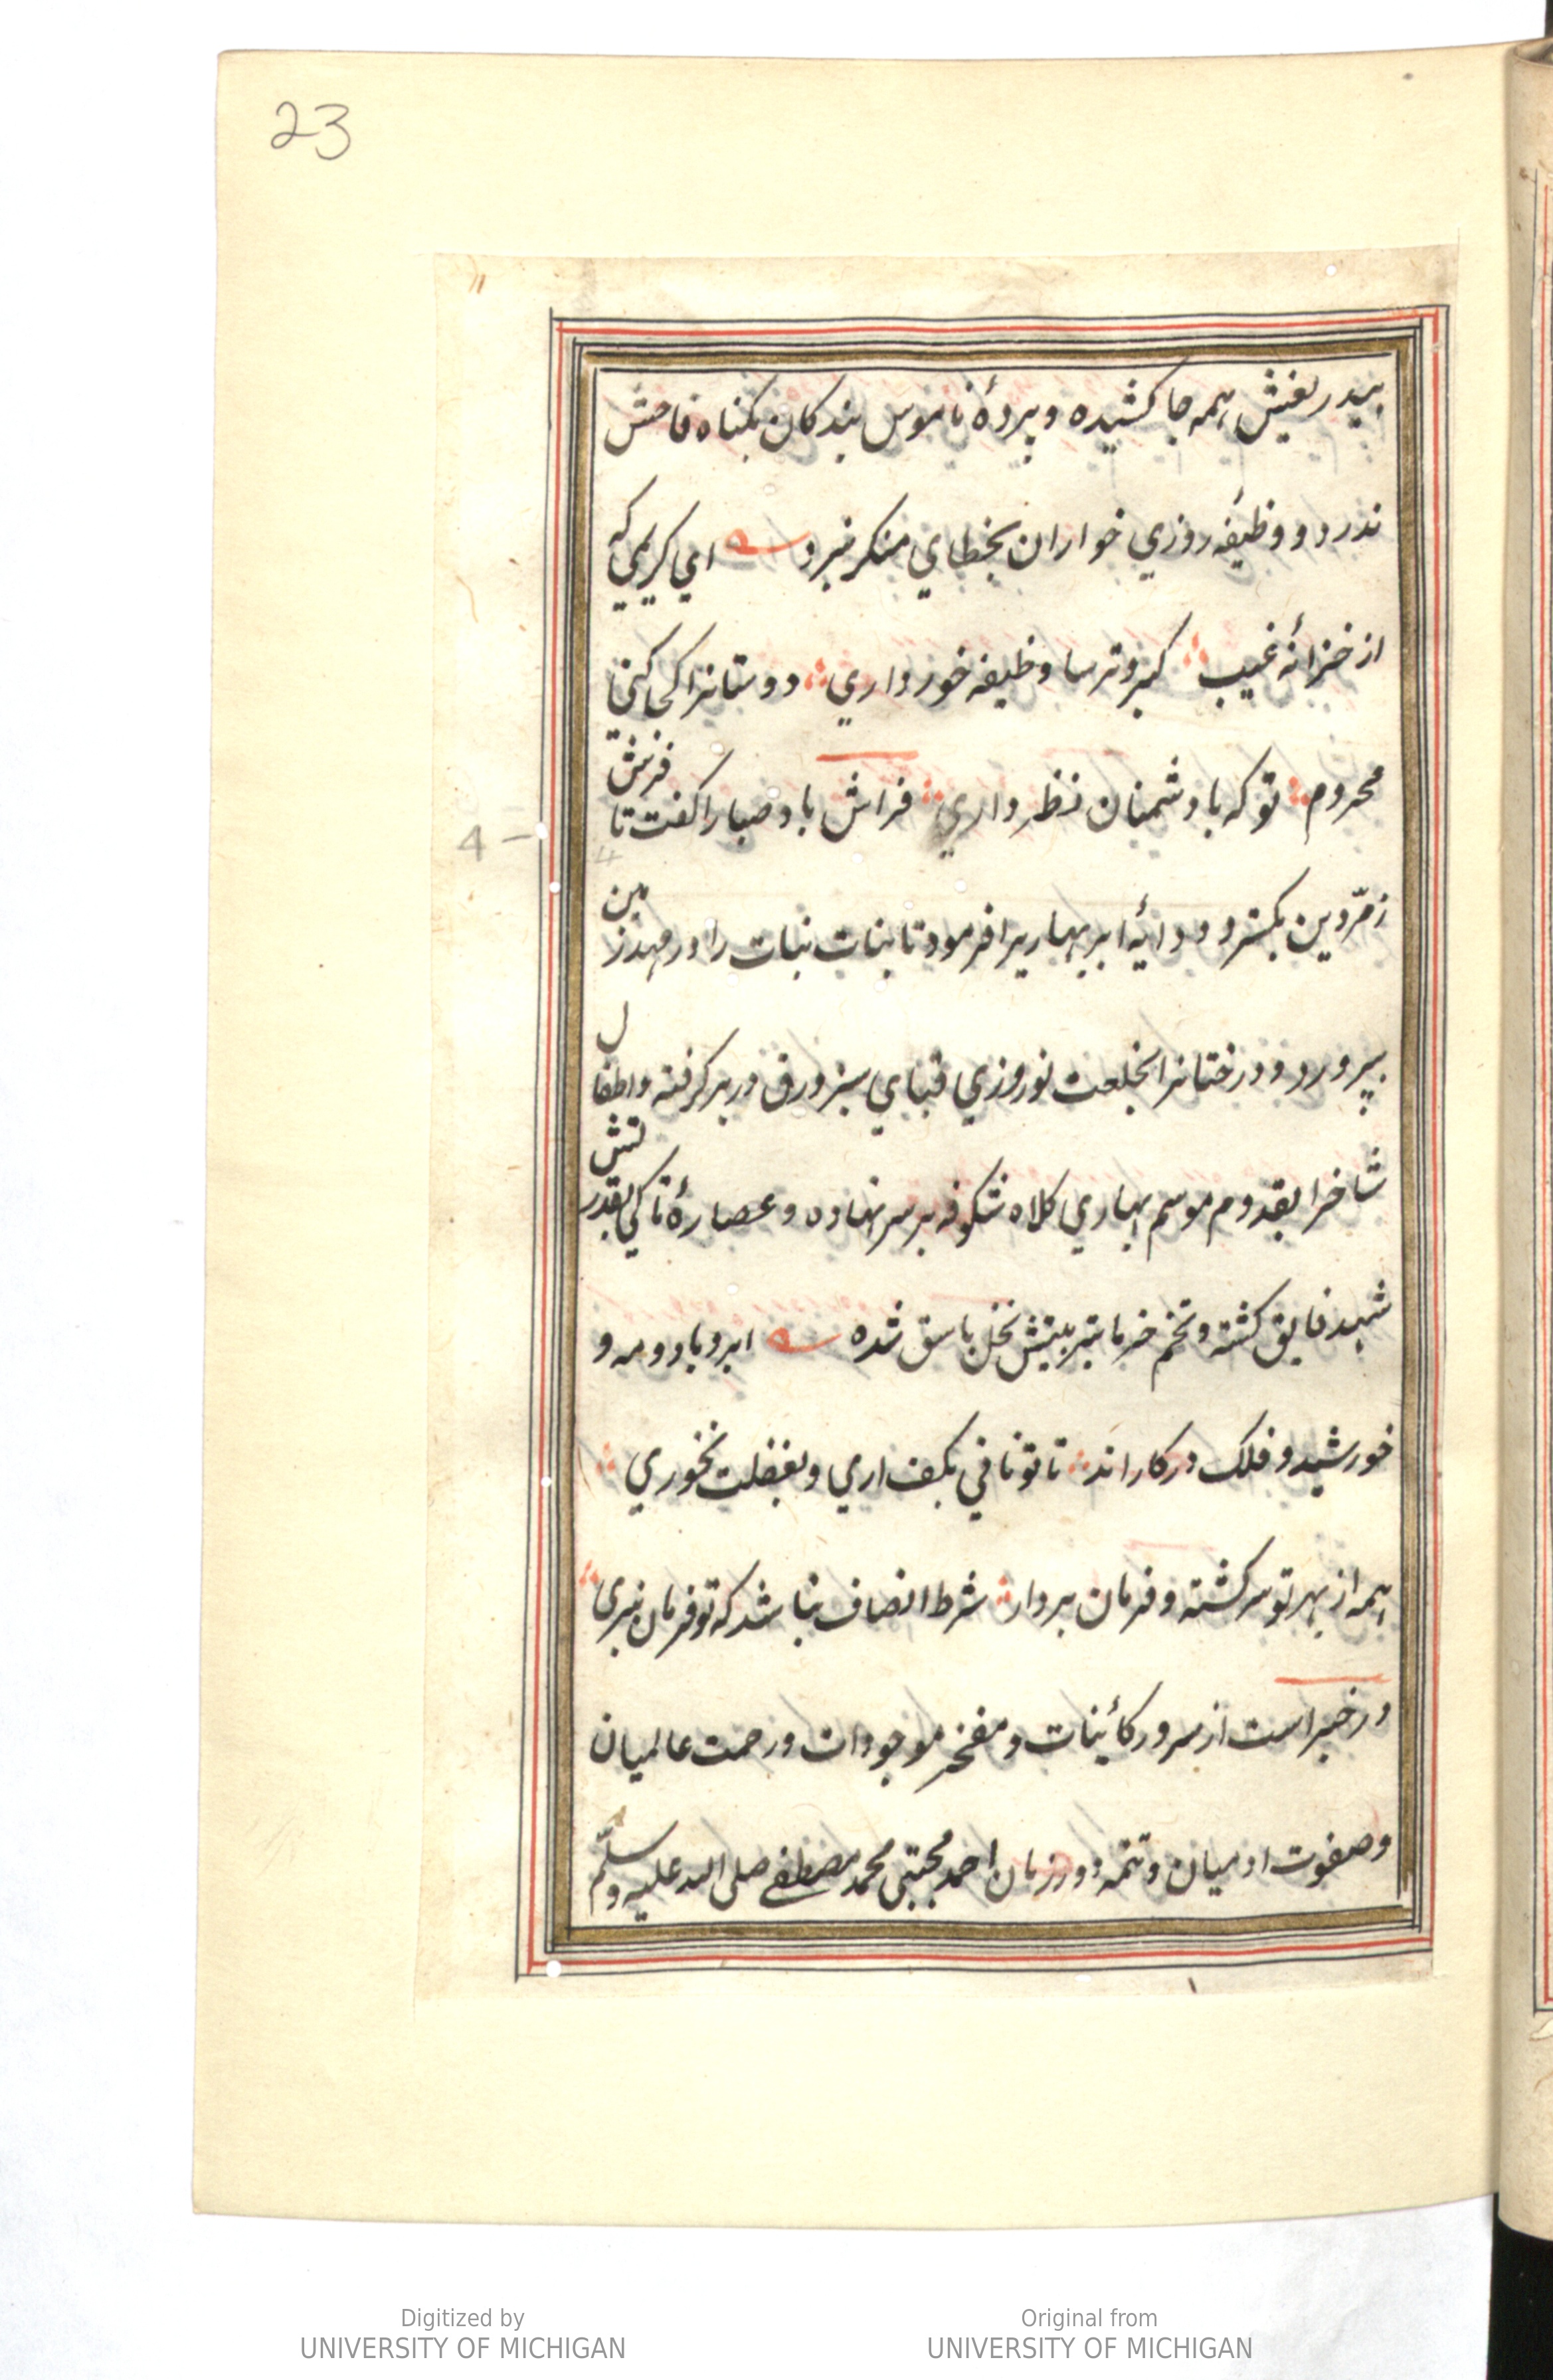 23
بیدریغش همه جا کشیده و پردهٔ ناموس بندکان بکناه فاحش
ندرد و وظیفه روزي خواران بخطاي منکر نبرد اي کریمي که
از خزانهٔ غیب کبر و ترسا وظیفه خور داري دوستانرا کجا کني
محروم تو که با دشمنان نظر داري فراش باد صبا را کفت تا فرش
زمرّدین بکسترد و دایهٔ ابر بهاریرا فرمود تا بنات نبات را در مهد زمین
بپرورد و درختانرا بخلعت نوروزي قباي سبز ورق در بر کرفته و اطفال
شاخرا بقدوم موسم بهاري کلاه شکوفه بر سر نهاده و عصارهٔ تاکي بقدرتش
شهد فایق کشته و تخم خرما بتربیتش نخل باسق شده ابر و باد و مه و
خورشید و فلک در کار اند تا تو ناني بکف اري و بغفلت نخوري
همه از بهر تو سرکشته و فرمان بردار شرط انصاف نباشد که تو فرمان نبری
در خبر است از سرور کائینات و مفخر موجودات و رحمت عالمیان
و صفوت ادمیان و تتمه دور زمان احمد مجتبی محمد مصطفے صلی الله علیه و سلّم
4 –
Digitized by
UNIVERSITY OF MICHIGAN
Original from
UNIVERSITY OF MICHIGAN